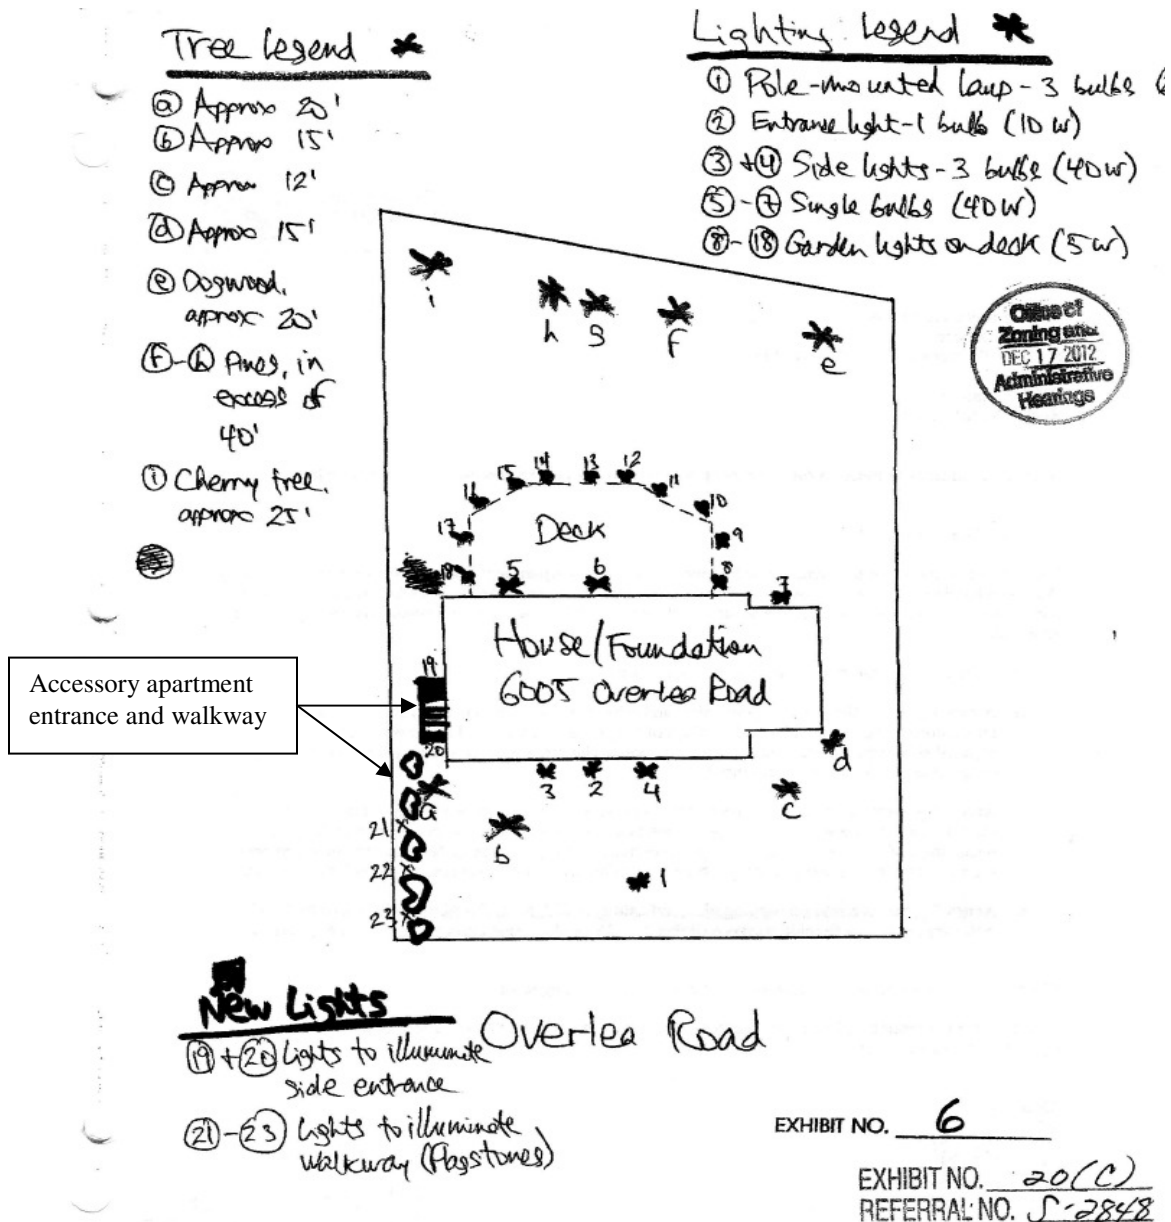 Tree Legend
ⓐ Approx 20'
ⓑ Approx 15'
ⓒ Approx 12'
ⓓ Approx 15'
ⓔ Dogwood,
approx 20'
ⓕ-ⓗ Pines, in
excess of
40'
ⓘ Cherry tree,
approx 25'
Lighting Legend
① Pole-mounted lamp - 3 bulbs
② Entrance light - 1 bulb (10 w)
③ + ④ Side lights - 3 bulbs (40w)
⑤-⑦ Single bulbs (40w)
⑧-⑱ Garden lights on deck (5w)
Office of
Zoning and
DEC 17 2012
Administrative
Hearings
i
h g f
e
15 14 13 12
16 11
10
17 9
Deck
18 5 6 8 7
House/Foundation
6005 Overlea Road
19
Accessory apartment
entrance and walkway
20
d
3 2 4
a
c
b
21
22
1
23
New Lights
⑲ + ⑳ Lights to illuminate
side entrance
㉑-㉓ Lights to illuminate
walkway (Flagstones)
Overlea Road
EXHIBIT NO. 6
EXHIBIT NO. 20(C)
REFERRAL NO. S-2848